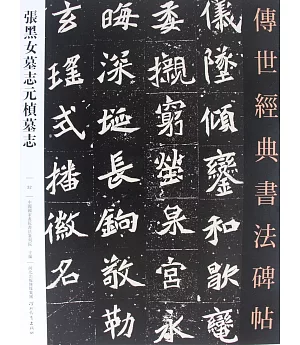 傳世經典書法碑帖
儀墜傾鑾和歇
委櫬窮塋泉宮永
晦深埏長銘敬勒
玄瑤式播徽名
張黑女墓志元楨墓志